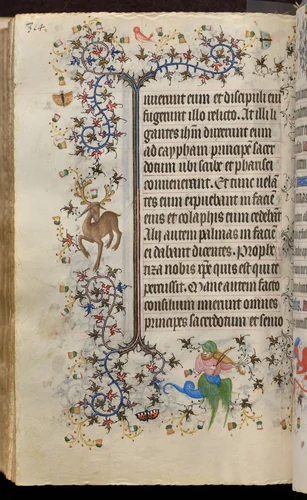 324.
nuerunt eum et discipuli eius
fugerunt illo relicto. At illi li
gantes ihm duxerunt eum
ad caypham principē sacer
dotum ubi scribe et pharisei
convenerant. Et tunc uelā
tes eum expuebant in faciē
eius et colaphis eum cedebāt
Alij autem palmas in faciē
ei dabant dicentes. Prophe
tiza nobis xpe quis est qui te
percussit. Mane autem facto
consilium inierunt omnes
principes sacerdotum et senio